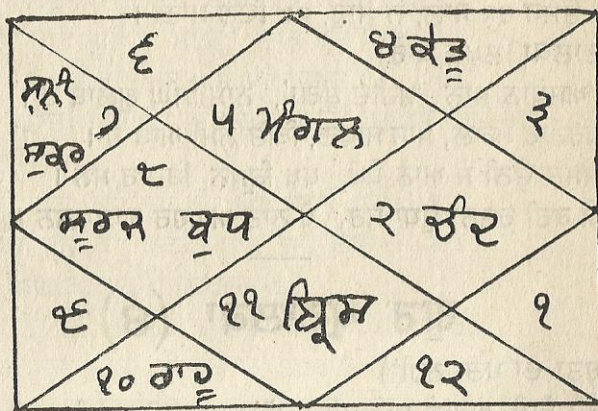 ੬
੪ ਕੇਤੂ
ਸ਼ਨੀ
੭
੫ ਮੰਗਲ
੩
ਸ਼ੁਕਰ
੮
ਸੂਰਜ ਬੁਧ
੨ ਚੰਦ
੯
੧੧ ਬ੍ਰਿਸ
੧
੧੦ ਰਾਹੂ
੧੨